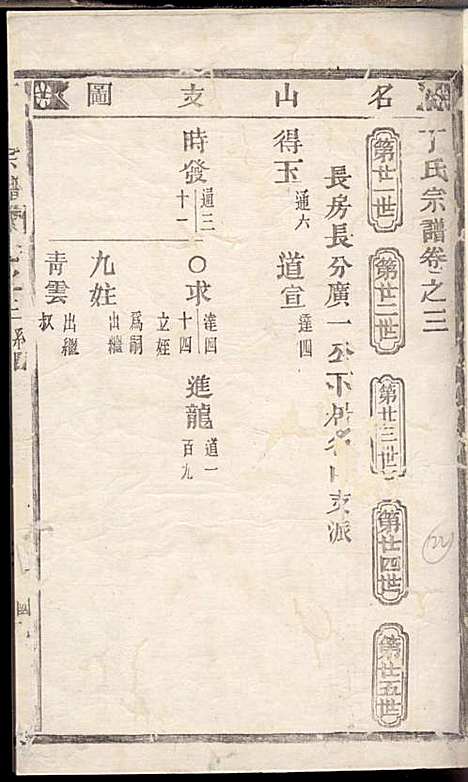 名山支圖
丁氏宗譜卷之三
第廿一世
第廿二世
第廿三世
第廿四世
第廿五世
長房長分廣一公下
支派
得玉 通六
道宣 達四
時發 通三十一
○求 達四十四 立姪爲嗣
進龍 道一百九
九姓 出繼
靑雲 出繼叔
22